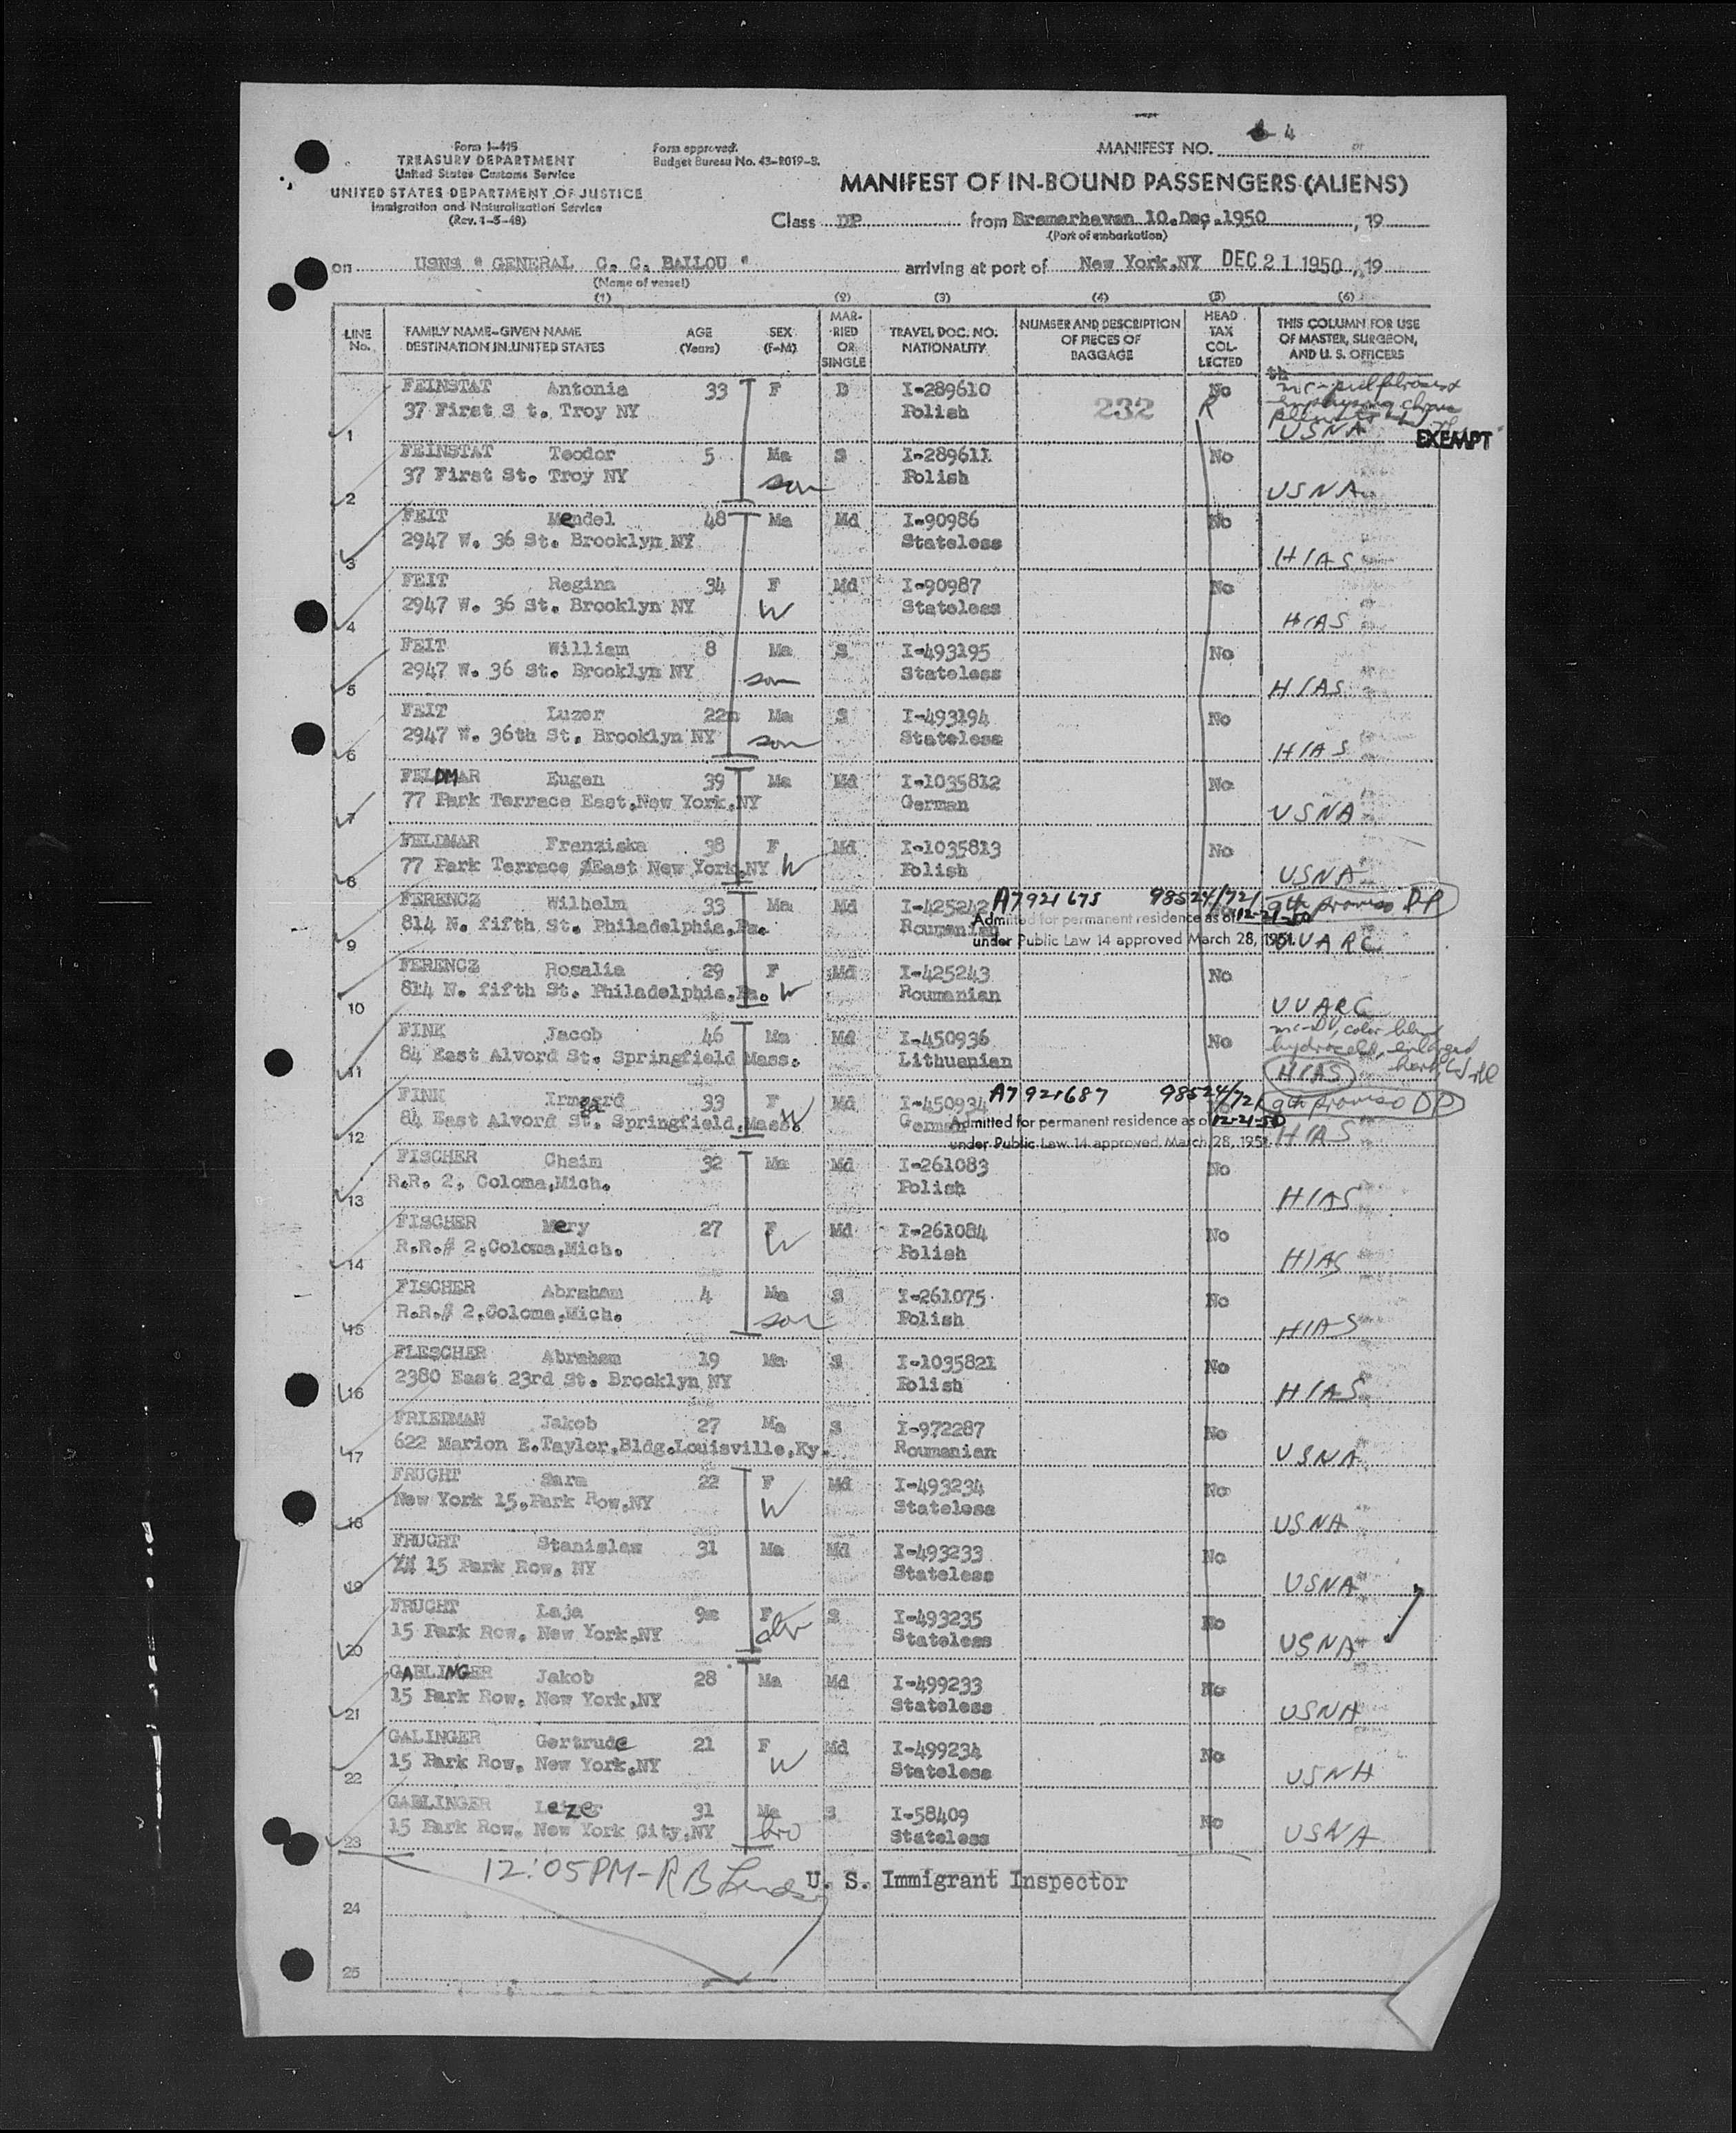 4
MANIFEST NO.
Form I-415
TREASURY DEPARTMENT
United States Customs Service
UNITED STATES DEPARTMENT OF JUSTICE
Immigration and Naturalization Service
(Rev. 1-5-48)
Form approved.
Budget Bureau No. 43-R019-3.
MANIFEST OF IN-BOUND PASSENGERS (ALIENS)
Class DP from Bremerhaven 10.Dec.1950, 19
(Port of embarkation)
on USNS " GENERAL C. C. BALLOU " arriving at port of New York,NY DEC 21 1950, 19
(Name of vessel)
(1) (2) (3) (4) (5) (6)
LINE No.
FAMILY NAME-GIVEN NAME AGE SEX
DESTINATION IN UNITED STATES (Years) (F-M)
MARRIED OR SINGLE
TRAVEL DOC. NO. NATIONALITY
NUMBER AND DESCRIPTION OF PIECES OF BAGGAGE
HEAD TAX COLLECTED
THIS COLUMN FOR USE OF MASTER, SURGEON, AND U. S. OFFICERS
FEINSTAT Antonia 33 F D I-289610 No
37 First S t. Troy NY Polish 232 R
1 USNA EXEMPT
FEINSTAT Teodor 5 Ma S I-289611 No
37 First St. Troy NY son Polish
2 USNA
FEIT Mendel 48 Ma Md I-90986 No
2947 W. 36 St. Brooklyn NY Stateless
3 HIAS
FEIT Regina 34 F Md I-90987 No
2947 W. 36 St. Brooklyn NY W Stateless
4 HIAS
FEIT William 8 Ma S I-493195 No
2947 W. 36 St. Brooklyn NY son Stateless
5 HIAS
FEIT Luzer 22m Ma S I-493194 No
2947 W. 36th St. Brooklyn NY son Stateless
6 HIAS
FELDMAR Eugen 39 Ma Md I-1035812 No
77 Park Terrace East,New York,NY German
7 USNA
FELDMAR Franziska 38 F Md I-1035813 No
77 Park Terrace East New York,NY W Polish
8 USNA
FERENCZ Wilhelm 33 Ma Md I-425242 A7921675 98524/721 9th proviso DP
814 N. fifth St. Philadelphia,Pa. Roumanian Admitted for permanent residence as of 12-21-50
9 under Public Law 14 approved March 28, 1951. UUARC
FERENCZ Rosalia 29 F Md I-425243 No
814 N. fifth St. Philadelphia,Pa. W Roumanian
10 UUARC
FINK Jacob 46 Ma Md I-450936 No color blind
84 East Alvord St. Springfield Mass. Lithuanian hydrocele, enlarged
11 HIAS
FINK Irmgard 33 F Md I-450934 A7921687 98524/721 9th proviso DP
84 East Alvord St. Springfield,Mass. W German Admitted for permanent residence as of 12-21-50
12 under Public Law 14 approved March 28, 1951. HIAS
FISCHER Chaim 32 Ma Md I-261083 No
R.R. 2, Coloma,Mich. Polish
13 HIAS
FISCHER Mery 27 F Md I-261084 No
R.R.# 2,Coloma,Mich. W Polish
14 HIAS
FISCHER Abraham 4 Ma S I-261075 No
R.R.# 2,Coloma,Mich. son Polish
15 HIAS
FLESCHER Abraham 19 Ma S I-1035821 No
2380 East 23rd St. Brooklyn NY Polish
16 HIAS
FRIEDMAN Jakob 27 Ma S I-972287 No
622 Marion E.Taylor,Bldg.Louisville,Ky. Roumanian
17 USNA
FRUCHT Sara 22 F Md I-493234 No
New York 15,Park Row,NY W Stateless
18 USNA
FRUCHT Stanislaw 31 Ma Md I-493233 No
15 Park Row, NY Stateless
19 USNA
FRUCHT Laja 9m F S I-493235 No
15 Park Row, New York,NY Stateless
20 USNA
GABLINGER Jakob 28 Ma Md I-499233 No
15 Park Row, New York,NY Stateless
21 USNA
GALINGER Gertrude 21 F Md I-499234 No
15 Park Row, New York,NY W Stateless
22 USNA
GABLINGER Leizer 31 Ma S I-58409 No
15 Park Row, New York City,NY bro Stateless
23 USNA
12:05PM-R B U. S. Immigrant Inspector
24
25